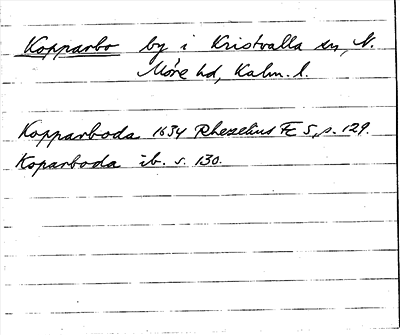 Kopparbo by i Kristvalla sn, N.
Möre hd, Kalm. l.
Kopparboda 1634 Rhezelius FE 5, s. 129.
Koparboda ib. s. 130.